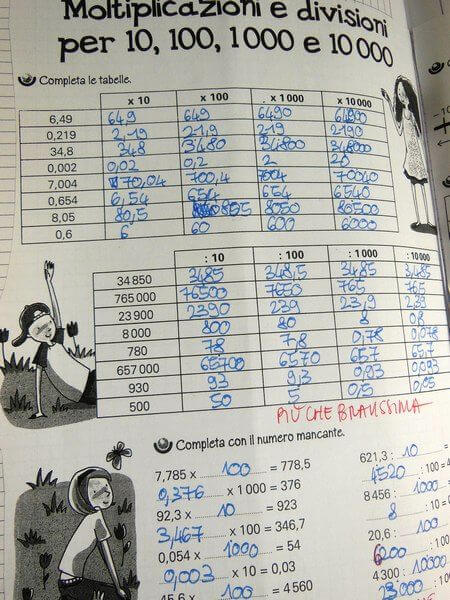 Moltiplicazioni e divisioni
per 10, 100, 1000 e 10000
Completa le tabelle.
x 10 x 100 x 1000 x 10000
6,49 649 6490 64900
0,219 2,19 21,9 219 2190
34,8 348 3480 34800 348000
0,002 0,02 0,2 2 20
7,004 70,04 700,4 7004 70040
0,654 6,54 654 6540
8,05 80,5 805 8050 80500
0,6 6 60 600 6000
: 10 : 100 : 1000 : 10000
34850 3485 348,5 3,485
765000 76500 7650 765
23900 2390 239 23,9 2,39
8000 800 80 8 0,8
780 78 7,8 0,78 0,078
657000 65700 6570 657 65,7
930 93 9,3 0,93 0,093
500 50 5 0,5 0,05
PIÙ CHE BRAVISSIMA
Completa con il numero mancante.
7,785 x 100 = 778,5 621,3 : 10 =
0,376 x 1000 = 376 4520 : 100 = 4
92,3 x 10 = 923 8456 : 1000 =
3,467 x 100 = 346,7 : 10 = 0
0,054 x 1000 = 54 20,6 : 100 =
0,003 x 10 = 0,03 6200 : 100 =
45,6 x 100 = 4560 4300 : 10000 =